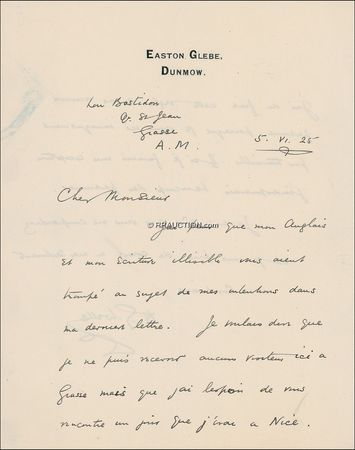 EASTON GLEBE,
DUNMOW.
Lou Bastidon
Qr. St Jean
Grasse
A. M.
5. VI. 25
Cher Monsieur
© RRAUCTION.com
que mon Anglais
et mon ecriture illisible vous aient
trompé au sujet de mes intentions dans
ma derniere lettre. Je voulais dire que
je ne puis recevoir aucuns visiteurs ici a
Grasse mais que j'ai l'espoir de vous
rencontre un jour que j'irai a Nice.